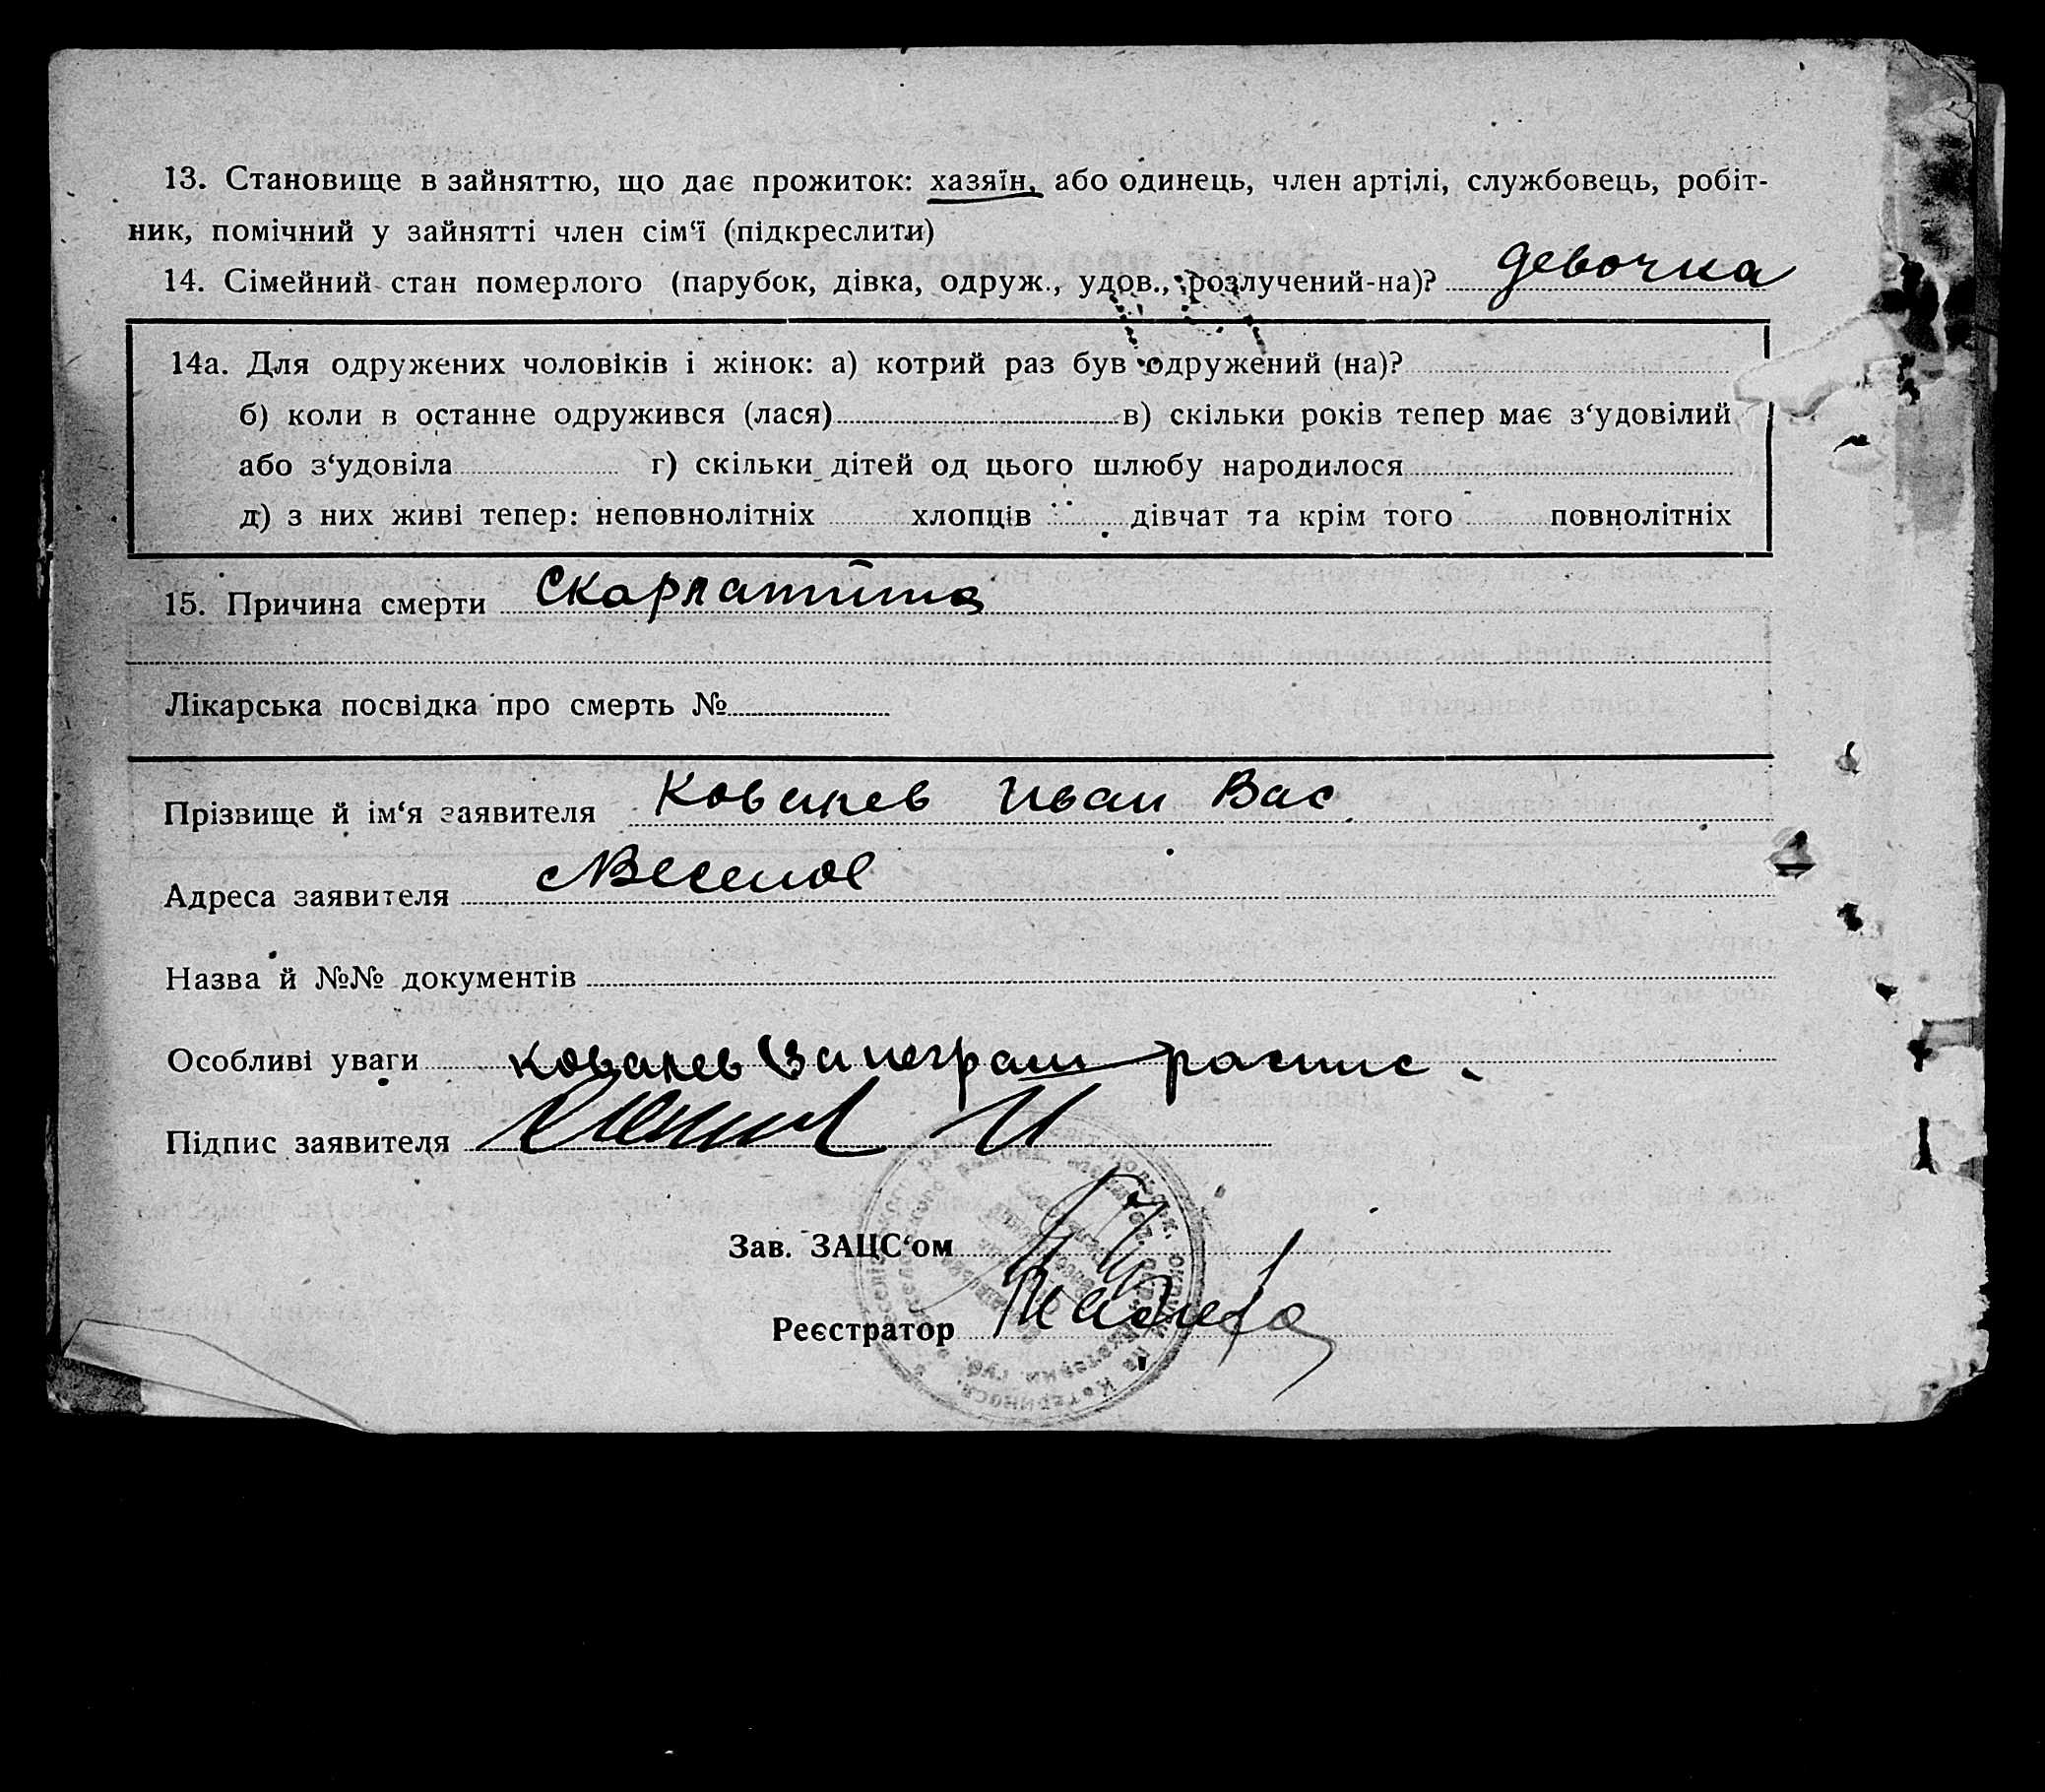 13. Становище в зайняттю, що дає прожиток: хазяїн, або одинець, член артілі, службовець, робіт-
ник, помічний у зайнятті член сім‘ї (підкреслити)
14. Сімейний стан померлого (парубок, дівка, одруж., удов., розлучений-на)? девочка
14а. Для одружених чоловіків і жінок: а) котрий раз був одружений (на)?
б) коли в останне одружився (лася) в) скільки років тепер має з‘удовілий
або з‘удовіла г) скільки дітей од цього шлюбу народилося
д) з них живі тепер: неповнолітніх хлопців дівчат та крім того повнолітніх
15. Причина смерти Скарлатина
Лікарська посвідка про смерть №
Прізвище й ім‘я заявителя Ковалев Иван Вас.
Адреса заявителя с Веселое
Назва й №№ документів
Особливі уваги Ковалев неграм распис.
Підпис заявителя
Зав. ЗАЦС‘ом
Реєстратор